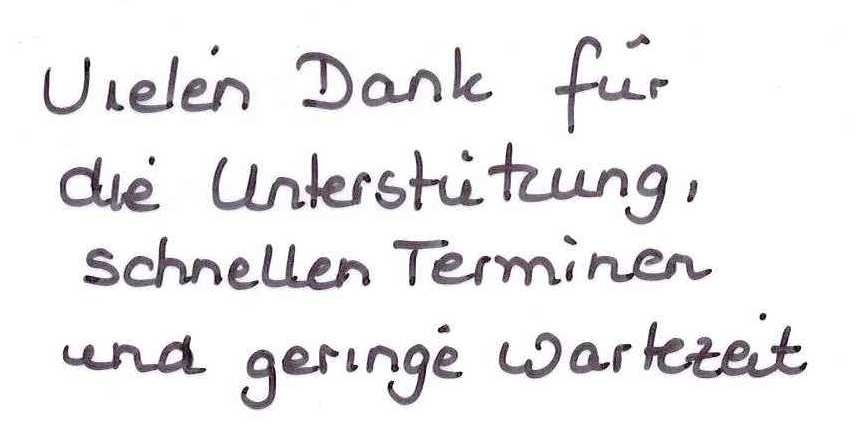 Vielen Dank für
die Unterstützung,
schnellen Terminen
und geringe Wartezeit